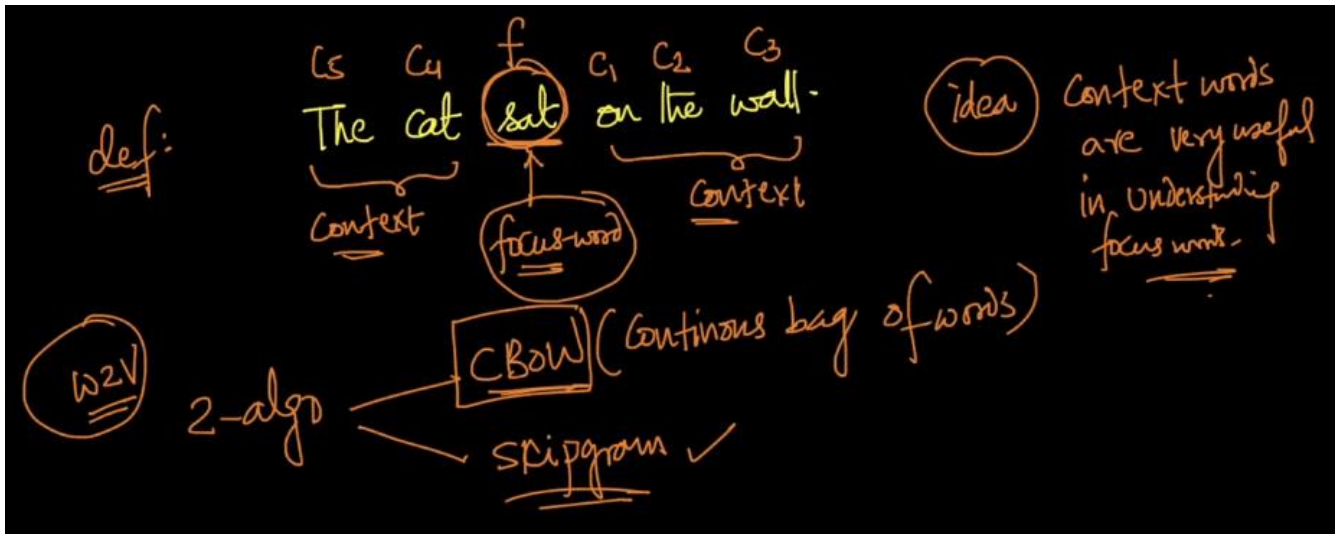 C5 C4 f C1 C2 C3
def: The cat sat on the wall.
context focus-word context
idea Context words
are very useful
in understanding
focus word.
W2V 2-algo CBOW (Continous bag of words)
skipgram ✓